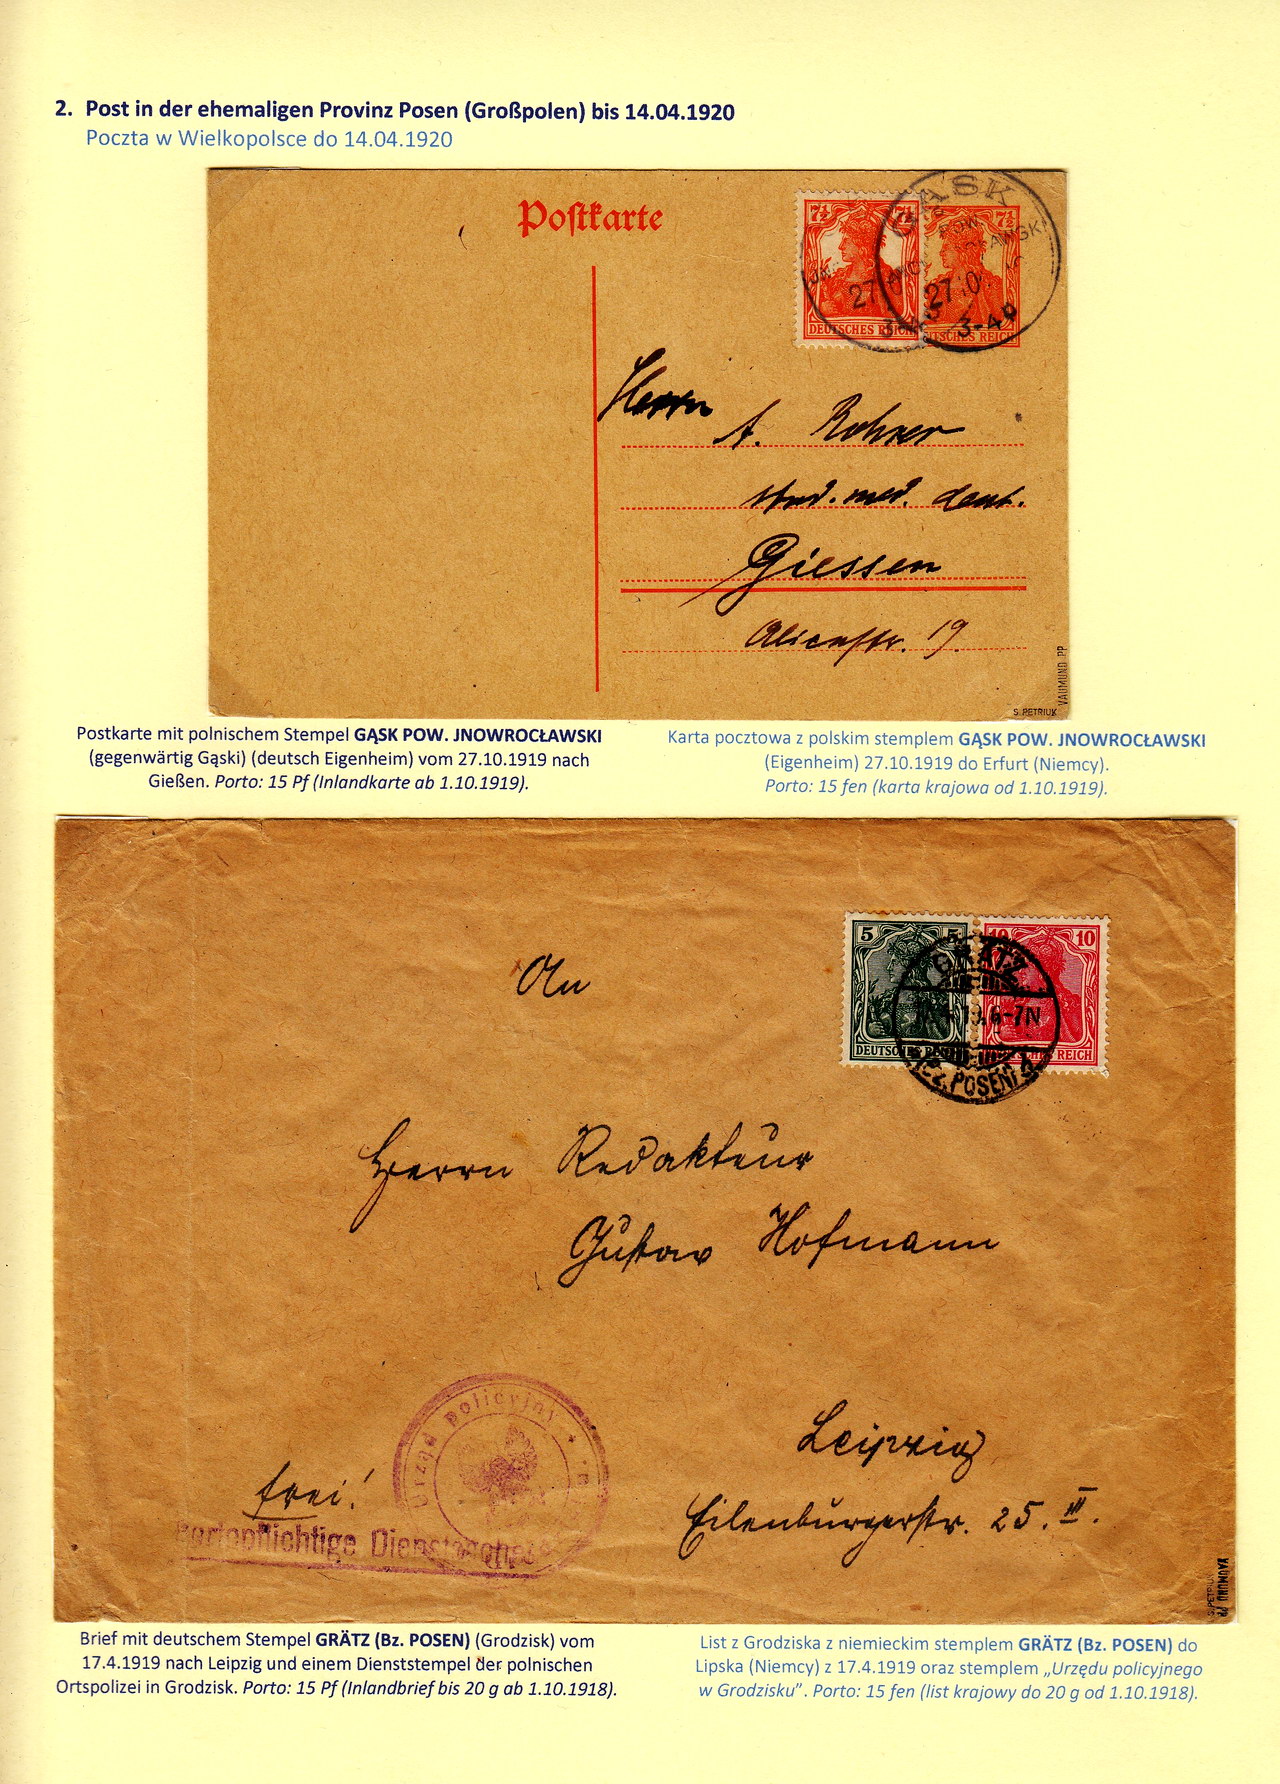 2. Post in der ehemaligen Provinz Posen (Großpolen) bis 14.04.1920
Poczta w Wielkopolsce do 14.04.1920
Postkarte
7½ 7½ 7½
GĄSK
POW.
27 27.10.
3-4P
DEUTSCHES REICH
Herrn
A. Rohrer
stud. med. dent.
Giessen
Alicestr. 19.
S. PETRIUK
VAUMUND PP
Postkarte mit polnischem Stempel GĄSK POW. JNOWROCŁAWSKI
(gegenwärtig Gąski) (deutsch Eigenheim) vom 27.10.1919 nach
Gießen. Porto: 15 Pf (Inlandkarte ab 1.10.1919).
Karta pocztowa z polskim stemplem GĄSK POW. JNOWROCŁAWSKI
(Eigenheim) 27.10.1919 do Erfurt (Niemcy).
Porto: 15 fen (karta krajowa od 1.10.1919).
5 5 10 10
GRÄTZ
6-7N
DEUTSCHES REICH
(Bz. POSEN)
An
Herrn Redakteur
Gustav Hofmann
Leipzig
Eilenburgerstr. 25. III.
Urząd policyjny
frei!
Portopflichtige Dienstsache
S. PETRIUK
VAUMUND PP
Brief mit deutschem Stempel GRÄTZ (Bz. POSEN) (Grodzisk) vom
17.4.1919 nach Leipzig und einem Dienststempel der polnischen
Ortspolizei in Grodzisk. Porto: 15 Pf (Inlandbrief bis 20 g ab 1.10.1918).
List z Grodziska z niemieckim stemplem GRÄTZ (Bz. POSEN) do
Lipska (Niemcy) z 17.4.1919 oraz stemplem „Urzędu policyjnego
w Grodzisku”. Porto: 15 fen (list krajowy do 20 g od 1.10.1918).